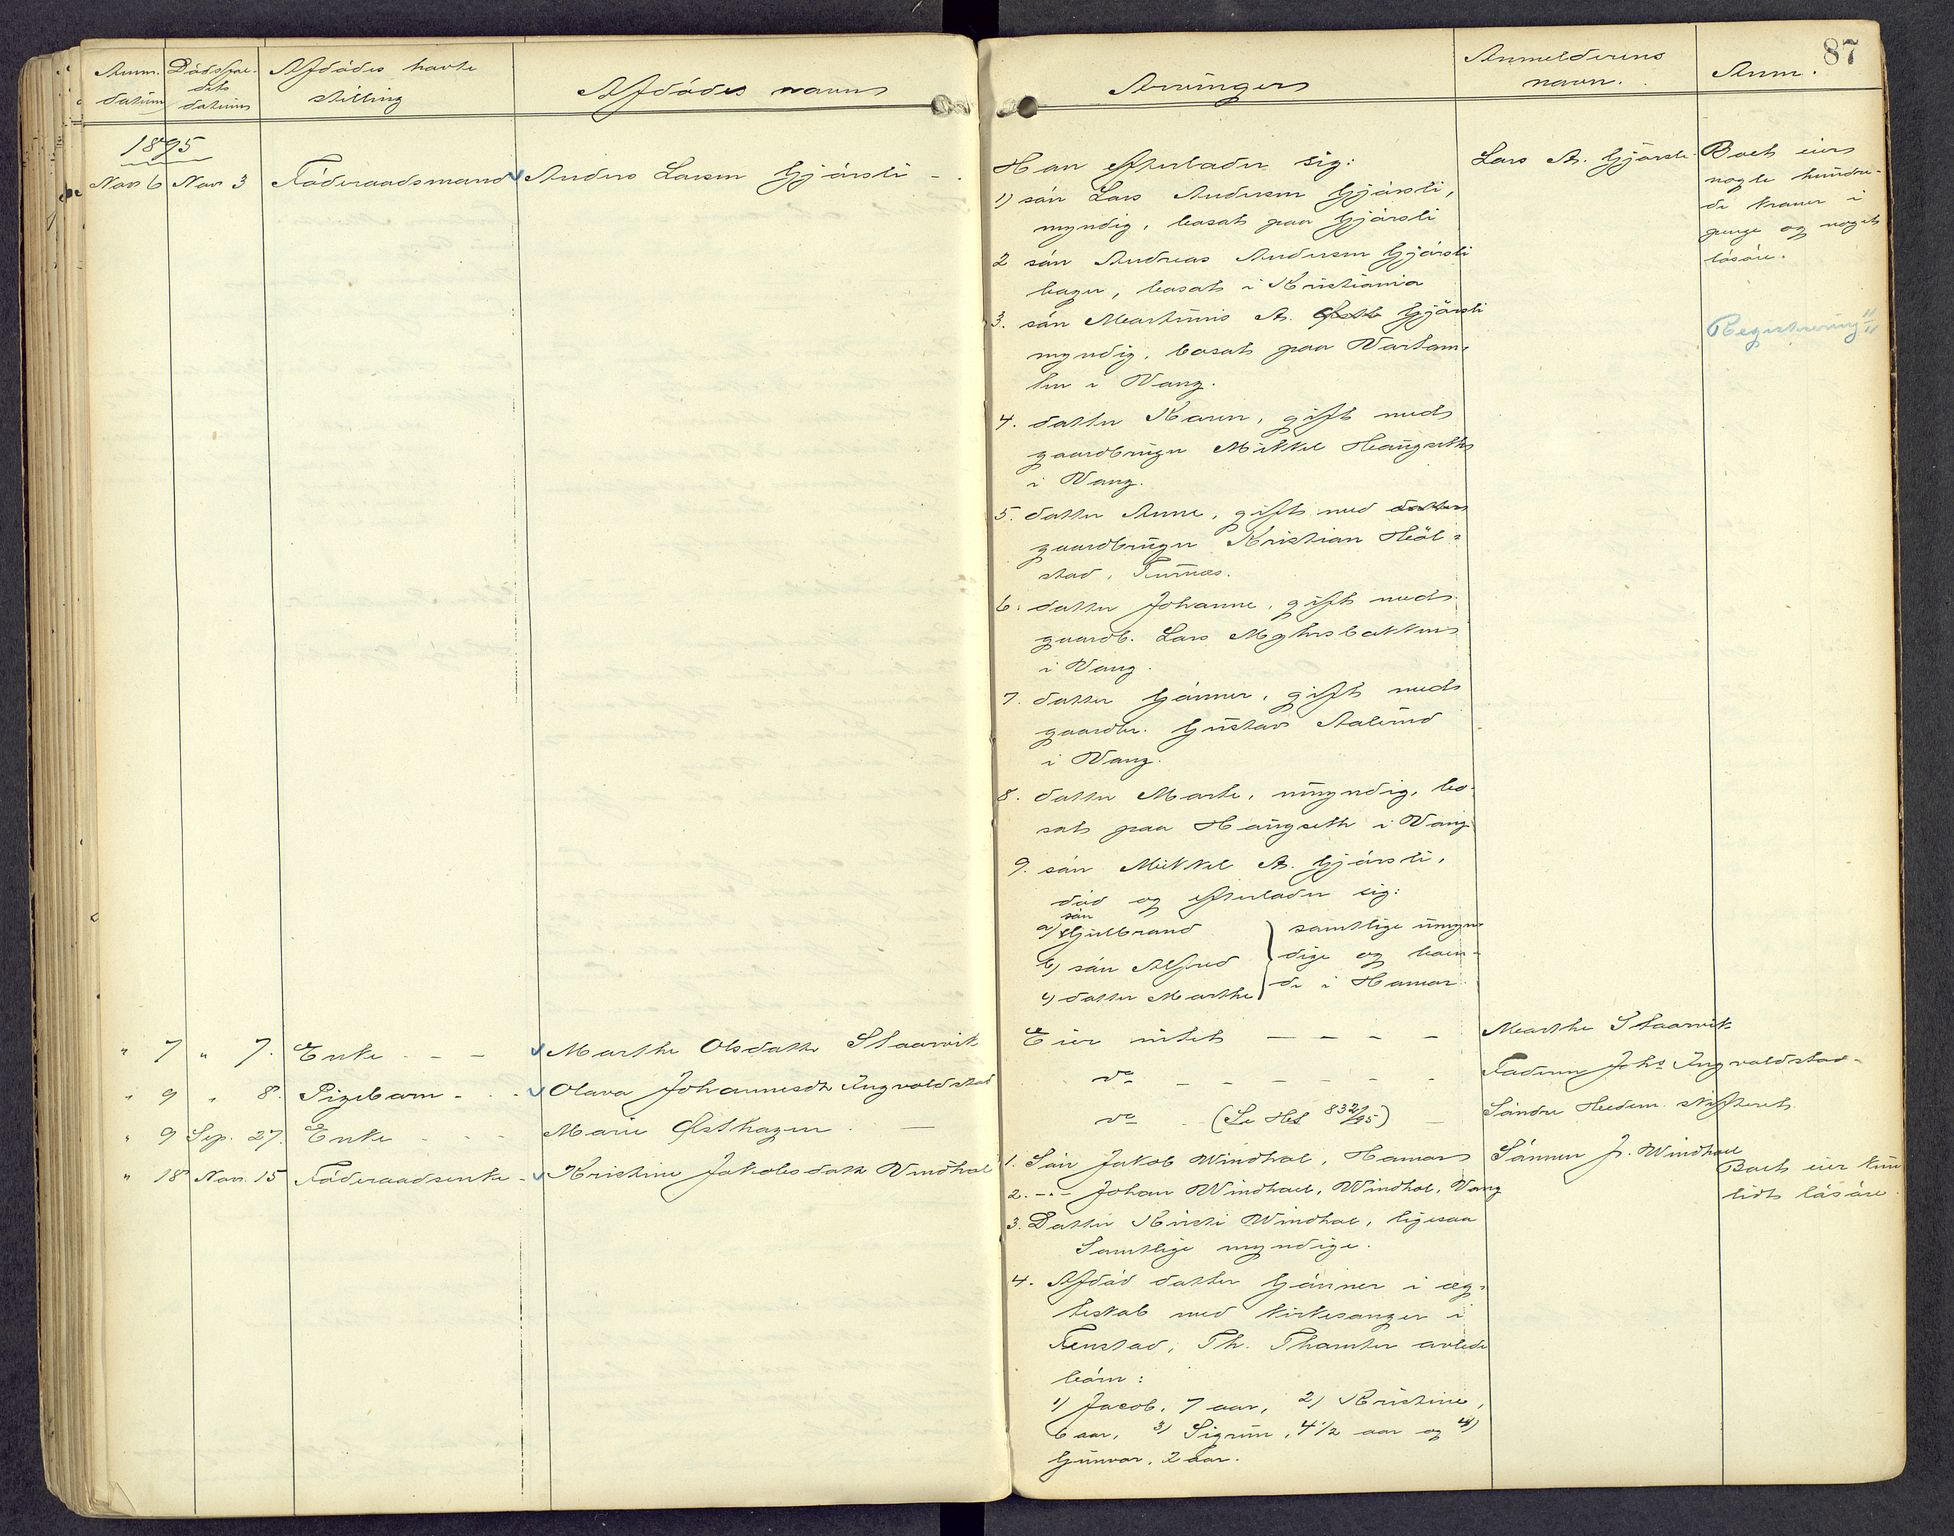 87
Anm. datum
Dödsfaldets datum
Afdödes havte stilling
Afdödes navn
Arvinger
Anmelderens navn.
Anm.
1895
Nov 6 Nov 3 Föderaadsmand Anders Larsen Gjörsli
Han efterlader sig:
1) sön Lars Andersen Gjörsli,
myndig, bosat paa Gjörsli
2 sön Andreas Andersen Gjörsli
bager, bosat i Kristiania
3. sön Martinus A. Gjörsli
myndig, bosat paa
i Vang.
4. datter Karen, gift med
gaardbruger Mikkel Haugseth
i Vang.
5. datter Anne, gift med datter
gaardbruger Kristian Höl-
stad, Furnæs.
6. datter Johanne, gift med
gaardb. Lars Myhrsbakken
i Vang.
7. datter Gunner, gift med
gaardbr. Gustav Aalund
i Vang.
8. datter Marte, umyndig, bo-
sat paa Haugseth i Vang
9. sön Mikkel A. Gjörsli,
död og efterlader sig:
a) sön Gulbrand
b) sön Alfred
c) datter Marthe
samtlige umyn-
dige og boen-
de i Hamar.
Lars A. Gjörsli.
Boet eier
nogle hundre-
de kroner i
penge og noget
lösöre.
Registrering 11/11
" 7 " 7. Enke - - Marthe Olsdatter Staarvik
Eier intet - - - - Marthe Staarvik
" 9 " 8. Pigebarn - - Olava Johannesdtr Ingvoldstad
do - - - - - - Faderen Johs Ingvoldstad
" 9 Sep. 27. Enke - - Marie Østhagen -
do (Se Hel 832/95) - Söndre Hedem. skifteret
" 18 Nov. 15 Föderaadsenke - Kristine Jakobsdatter Vindhol
1. Sön Jakob Windhol, Hamar
2. -"- Johan Windhol, Windhol, Vang
3. Datter Kirsti Windhol, ligesaa
Samtlige myndige.
4. Afdöd datter Gunner i æg-
teskab med kirkesanger i
Fenstad, Th. Thomter avlede
börn:
1) Jacob, 7 aar, 2) Kristine,
6 aar, 3) Sigrun, 4 1/2 aar og 4)
Gunvor, 2 aar.
Sönnen J. Windhoel
Boet eier kun
lidt lösöre.